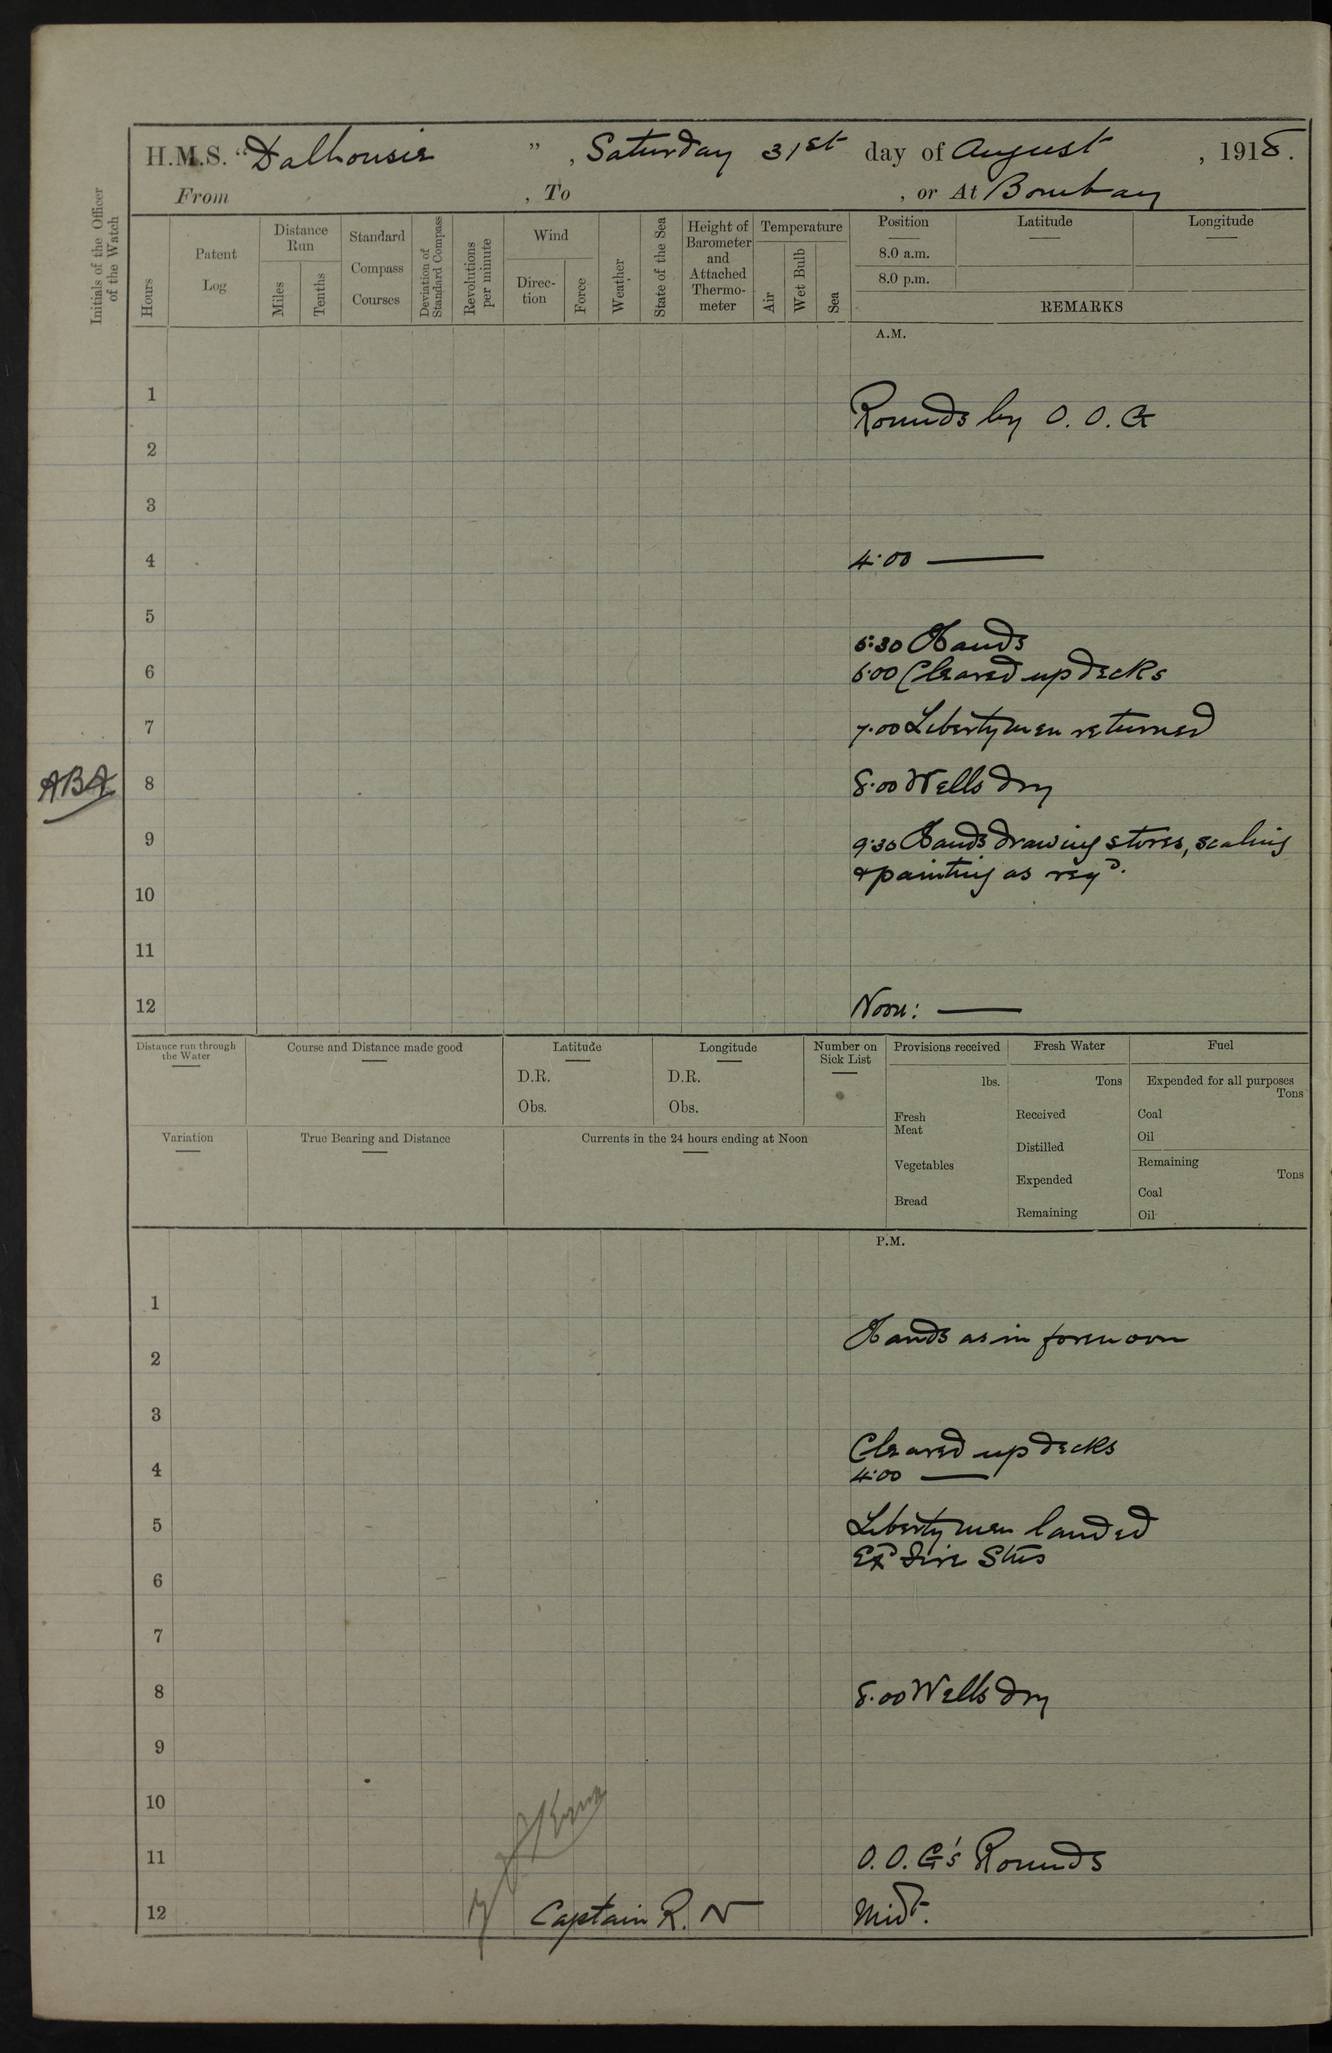 H.M.S. "Dalhousie", Saturday 31st day of August, 1918.
From , To , or At Bombay
Initials of the Officer of the Watch
Hours
Patent Log
Distance Run
Miles
Tenths
Standard Compass Courses
Deviation of Standard Compass
Revolutions per minute
Wind
Direction
Force
Weather
State of the Sea
Height of Barometer and Attached Thermometer
Temperature
Air
Wet Bulb
Sea
Position Latitude Longitude
8.0 a.m.
8.0 p.m.
REMARKS
A.M.
1
Rounds by O. O. G
2
3
4 4.00 ——
5
5:30 Hands
6 6.00 Cleared up decks
7 7.00 Liberty men returned
ABA 8 8.00 Wells dry
9 9.30 Hands drawing stores, scaling
& painting as reqd.
10
11
12 Noon: ——
Distance run through the Water
Course and Distance made good
Latitude
D.R.
Obs.
Longitude
D.R.
Obs.
Number on Sick List
Provisions received
lbs.
Fresh Meat
Vegetables
Bread
Fresh Water
Tons
Received
Distilled
Expended
Remaining
Fuel
Expended for all purposes
Tons
Coal
Oil
Remaining
Tons
Coal
Oil
Variation
True Bearing and Distance
Currents in the 24 hours ending at Noon
P.M.
1
Hands as in forenoon
2
3
Cleared up decks
4 4.00 ——
5 Liberty men landed
Exd Fire Stns
6
7
8 8.00 Wells dry
9
10
11 O. O. G's Rounds
12 Captain R. N Midt.